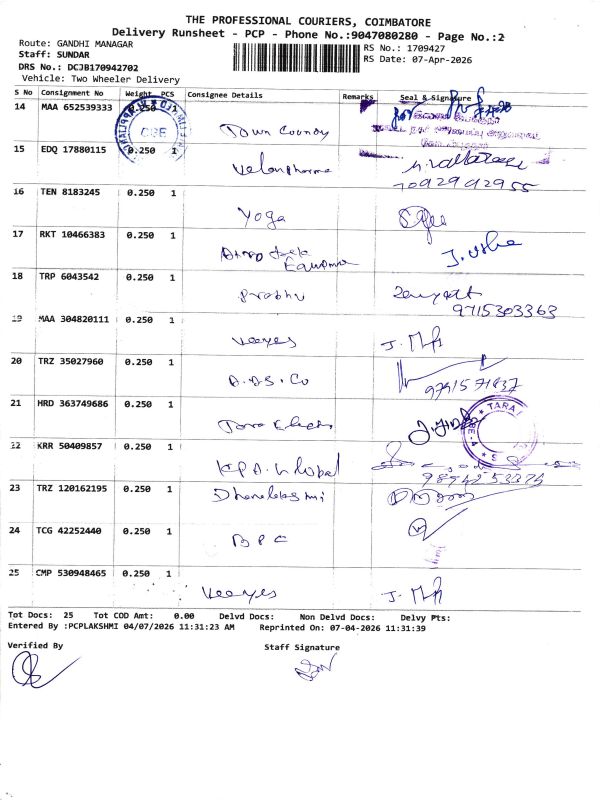 THE PROFESSIONAL COURIERS, COIMBATORE
Delivery Runsheet - PCP - Phone No.:9047080280 - Page No.:2
Route: GANDHI MANAGAR
RS No.: 1709427
Staff: SUNDAR
RS Date: 07-Apr-2026
DRS No.: DCJB170942702
Vehicle: Two Wheeler Delivery
S No Consignment No Weight PCS Consignee Details Remarks Seal & Signature
14 MAA 652539333 0.250 1
CBE
Town Coundy
15 EDQ 17880115 0.250 1
Velan Pharma
7092992955
16 TEN 8183245 0.250 1
Yoga
17 RKT 10466383 0.250 1
J. Usha
18 TRP 6043542 0.250 1
Prabhu
9715303363
19 MAA 304820111 0.250 1
Veeyes
20 TRZ 35027960 0.250 1
A.D.S. Co
9791571437
21 HRD 363749686 0.250 1
TARA
22 KRR 50409857 0.250 1
23 TRZ 120162195 0.250 1
Dhanalakshmi
24 TCG 42252440 0.250 1
B P C
25 CMP 530948465 0.250 1
Veeyes
Tot Docs: 25 Tot COD Amt: 0.00 Delvd Docs: Non Delvd Docs: Delvy Pts:
Entered By :PCPLAKSHMI 04/07/2026 11:31:23 AM Reprinted On: 07-04-2026 11:31:39
Verified By
Staff Signature